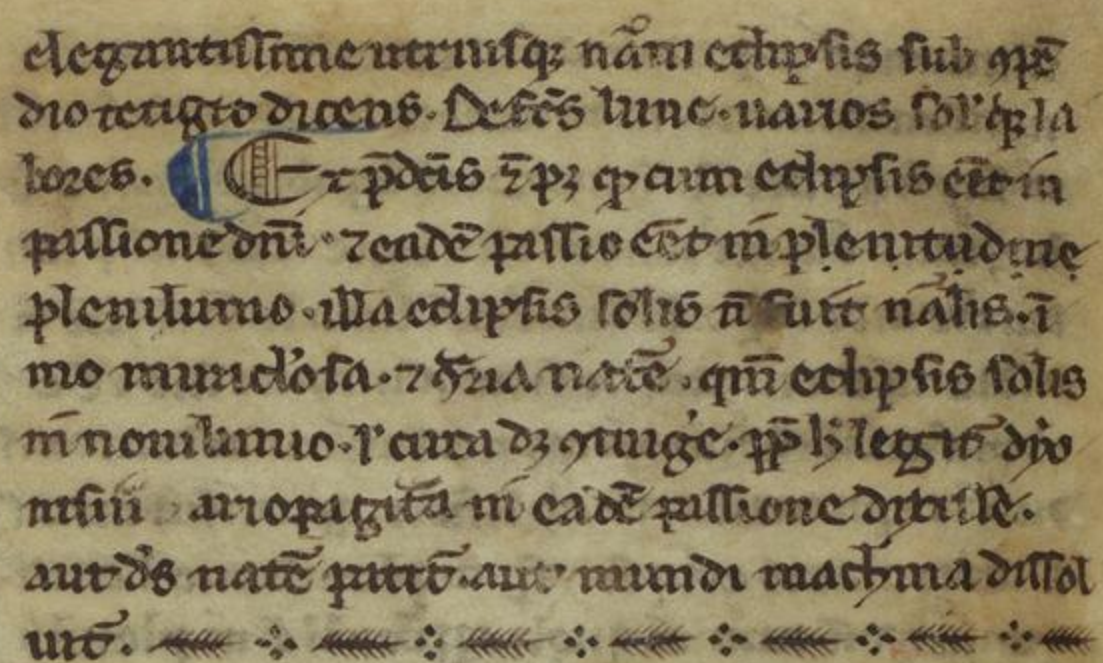 elegantissime utriusqꝫ nãm eclipsis sub ꝯpẽ
dio tetigit dicens. Defcũs lune. uarios sol'qꝫ la
bores. Et p̄dcis ī pꝫ ꝙ cum eclipsis eēt in
passione dnī. ⁊ eadē passio eēt in plenitudine
plenilunio. illa eclipsis solis n̄ fuit nālis. ī
mo miraclosa. ⁊ ꝯ̄ria natē. qm̄ eclipsis solis
in nouilunio. ł circa dꝫ ꝯtinge. ꝓp̄ h̵ legit̄ dyo
nisiū ariopagitā in eadē passione dixisse.
aut ds̄ natē patit̄. aut mundi machina dissol
uit̄.